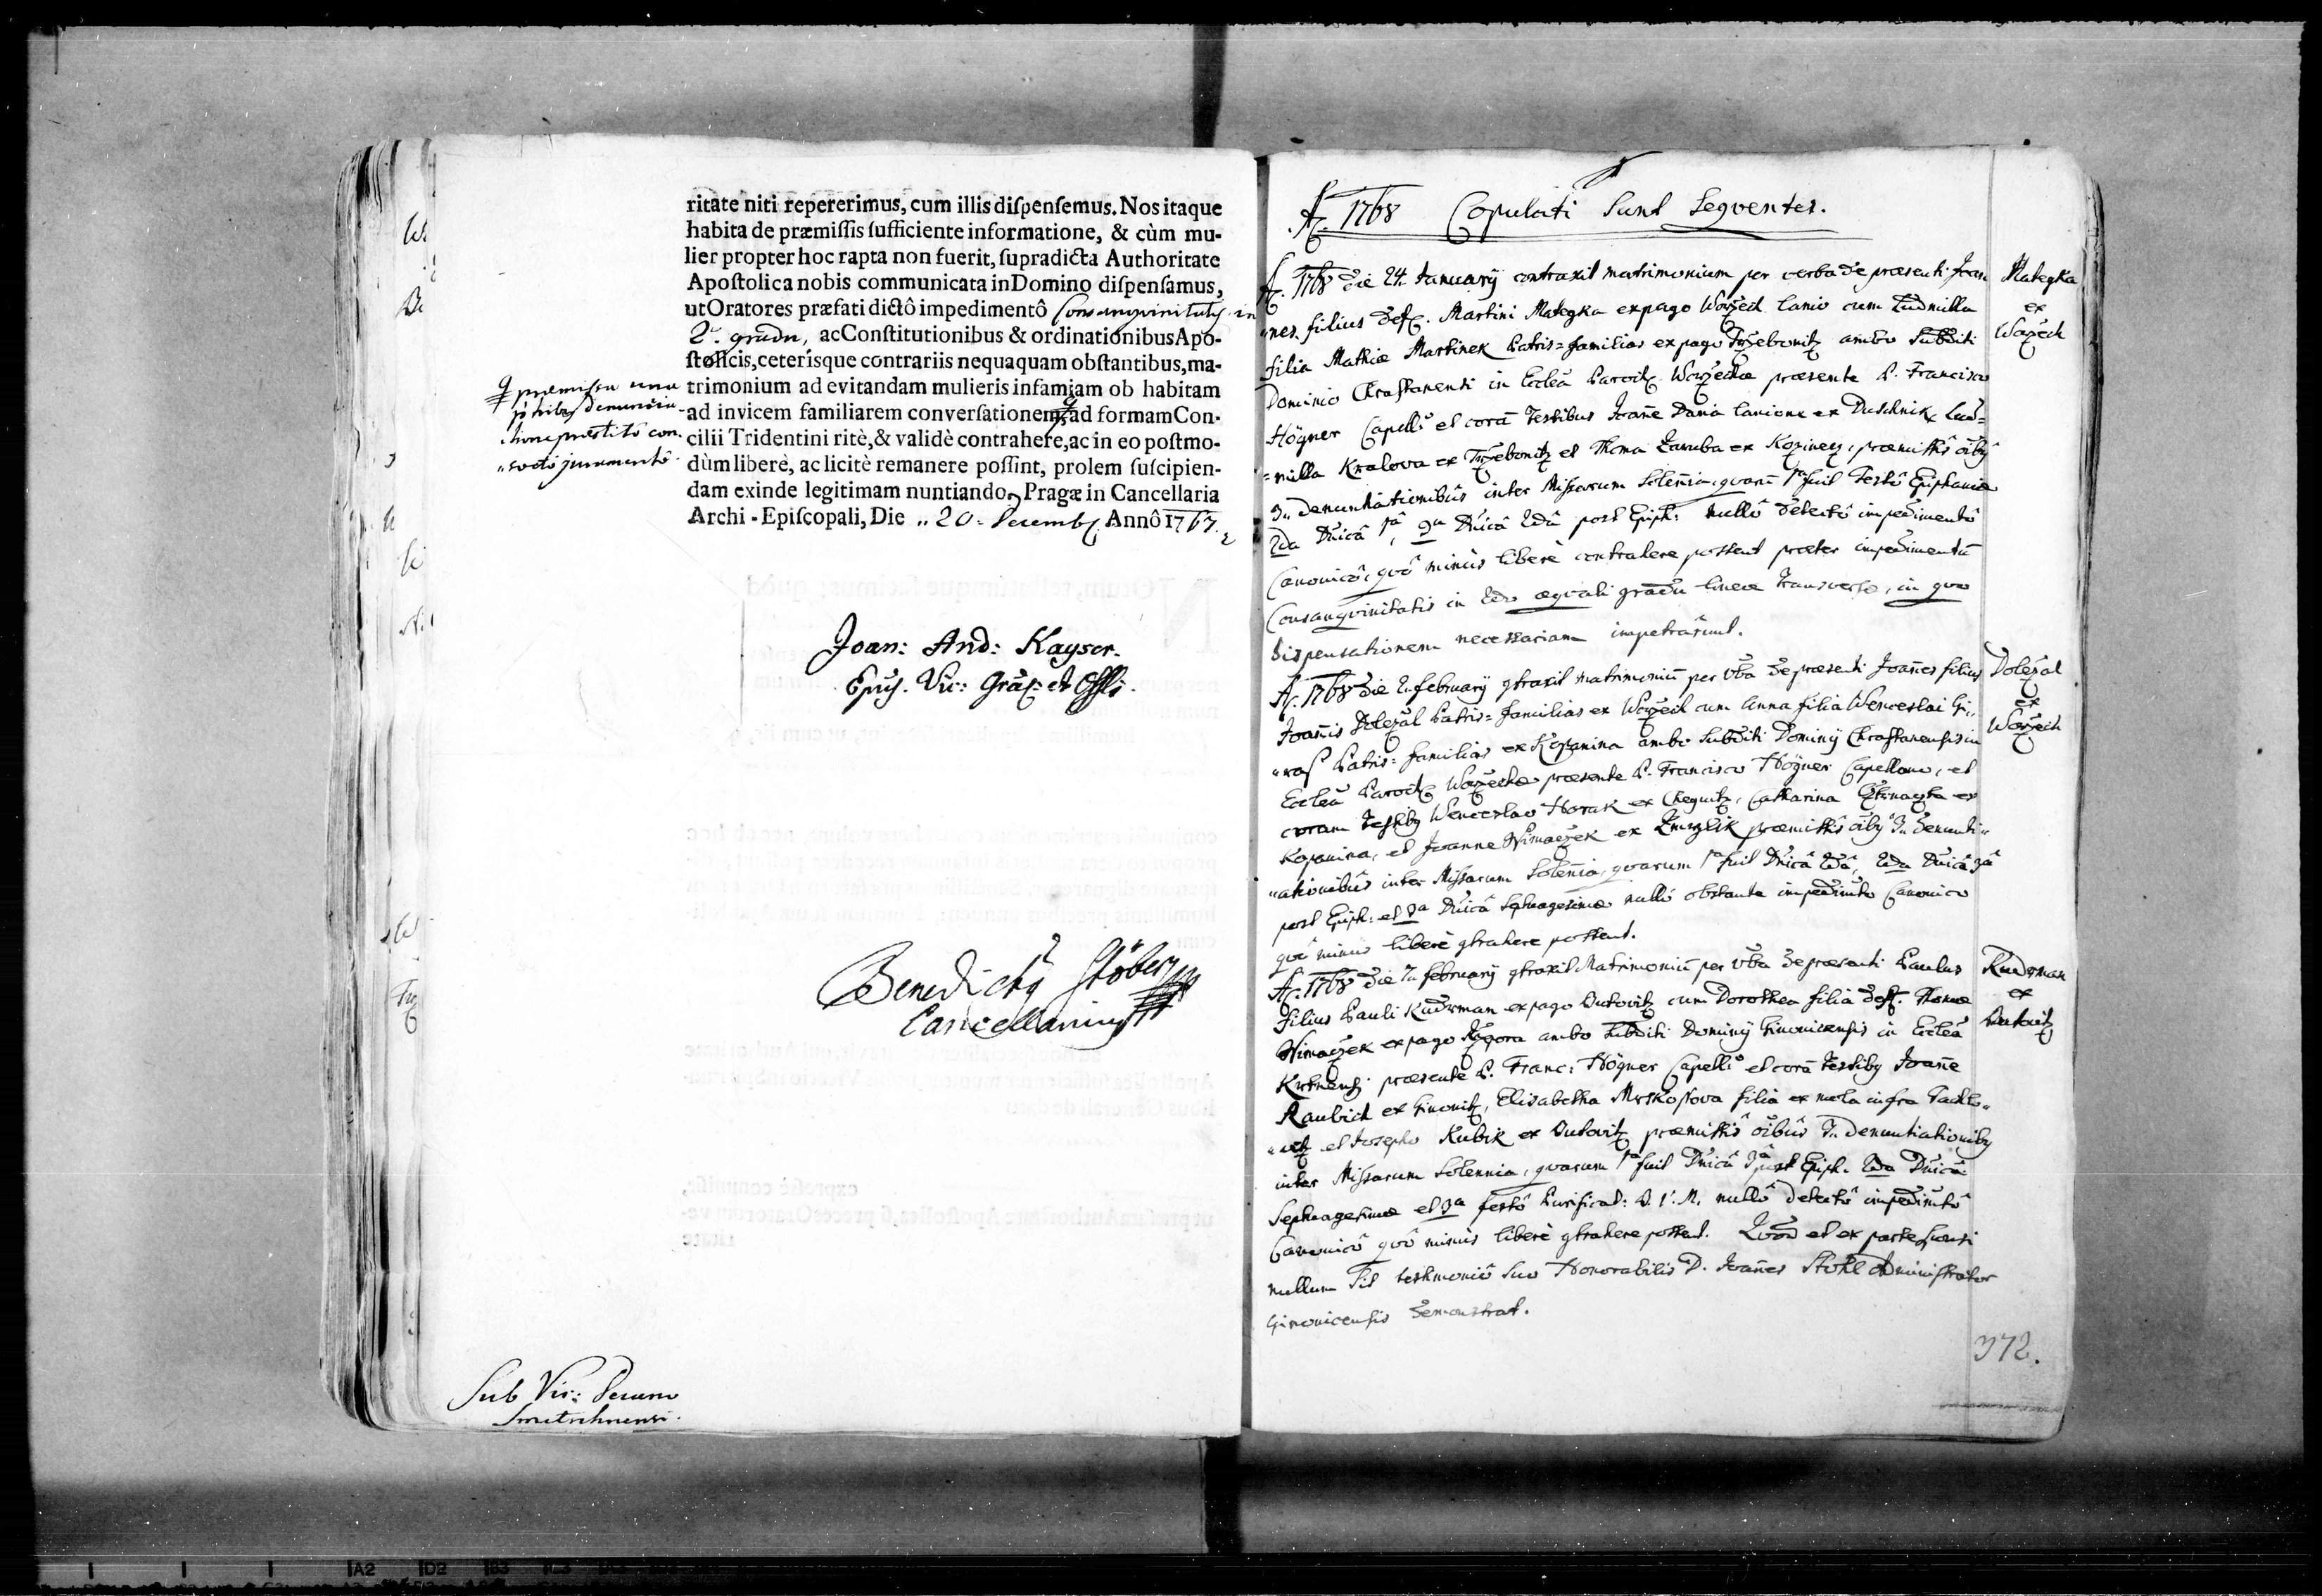 ritate niti repererimus, cum illis diſpenſemus. Nos itaque
habita de præmiſſis ſufficiente informatione, & cùm mu-
lier propter hoc rapta non fuerit, ſupradicta Authoritate
Apoſtolica nobis communicata in Domino diſpenſamus,
ut Oratores præfati dictô impedimentô Consangvinitatis in
2º. gradu, ac Conſtitutionibus & ordinationibus Apo-
ſtolicis, ceterisque contrariis nequaquam obſtantibus, ma-
trimonium ad evitandam mulieris infamiam ob habitam
ad invicem familiarem converſationem, ad formam Con-
cilii Tridentini ritè, & validè contrahere, ac in eo poſtmo-
dùm liberè, ac licitè remanere poſſint, prolem ſuſcipien-
dam exinde legitimam nuntiando, Pragæ in Cancellaria
Archi-Epiſcopali, Die 20. Decemb Annô 1767.
præmissa una
denuncia-
tione præstitô con-
sveto juramentô
Joan: And: Kayser.
Epûs. Vic: Grâlis et Offlis.
Benedictg Stöber
Cancellarius
Sub Vic: Decano
Smetschnensi.
Aº. 1768 Copulati Sunt Seqventes.
Aº. 1768 die 24. January contraxit matrimonium per verba de præsenti Joan
nes filius deft. Martini Mategka ex pago Woržech lanio cum Ludmilla
filia Mathiæ Martinek Patris-familias ex pago Tržebonitz ambo Subditi
Dominio Chrastanensi in Eccleâ Paroch. Woržechæ præsente P. Francisco
Högner Capellº et corã testibus Joanne Dania lanione ex Duschnik, Lud-
milla Kralova ex Tržebonitz et Thoma Zaruba ex Kozinetz, præmissis õibg
3. denuntiationibus inter Missarum Solennia, qvarũ 1ª fuit Festô Epiphaniæ
2da Dnicâ 1â, 3a Dnicâ 2dâ post Epiph: nullô detectô impedimentô
Canonicô, qvô minùs liberè contrahere possent præter impedimentũ
Consangvinitatis in 2do æqvali gradu lineæ transversæ, in qvo
dispensationem necessariam impetrârunt.
Mategka
ex
Woržech
Aº. 1768 die 2. february gtraxit matrimoniũ per vba de præsenti Joannes filius
Joannis Doležal Patris-familias ex Woržech cum Anna filia Wenceslai Gi-
raſ Patris-familias ex Kopanina ambo Subditi Dominy Chrastanensis in
Eccleâ Paroch. Woržechæ præsente P. Francisco Högner Capellano, et
coram testibg Wenceslao Horak ex Chegnitz, Catharina ex
Kopanina, et Joanne Wimaczek ex Zmrzlik præmissis õibg 3. denunti-
ationibus inter Missarum Solennia, qvarum 1ª fuit Dnicâ 2dâ, 2da Dnicâ 3â
post Epiph: et 3a Dnicâ Septuagesimæ nullô obstante impedimto Canonico
qvô minus liberè gtrahere possent.
Doležal
ex
Woržech
Aº. 1768 die 7. february gtraxit Matrimoniũ per vba de præsenti Paulus
filius Pauli Kudrman ex pago Butovitz cum Dorothea filia deft. Thomæ
Wimaczek ex pago Ržepora ambo Subditi Dominy Ginonicensis in Eccleâ
præsente P. Franc: Högner Capellº et corã testibg Joanne
Raubich ex Ginonitz, Elisabetha Mrskoſova filia ex mola infra Tachlo-
witz et Josepho Kubik ex Butovitz præmissis õibus 3. denuntiationibg
inter Missarum Solennia, qvarum 1ª fuit Dnicâ 3â post Epiph. 2da Dnicâ
Septuagesimæ et 3a festô Purificat: B. V. M. nullô detectô impedimtô
Canonicô qvô minùs liberè gtrahere possent. Qvod et ex parte sponsi
nullum sit testimoniô suo Honorabilis D. Joannes Stohl Administrator
Ginonicensis demonstrat.
Kudrman
ex
Butovitz
372.